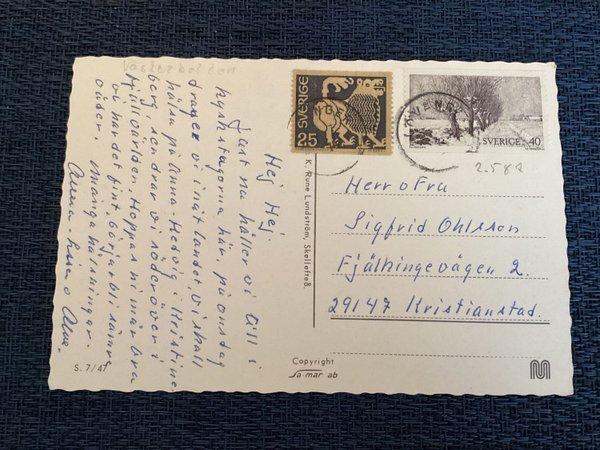 Västerbotten
Hej Hej.
Just nu håller vi till i
kyrkstugorna här, på onsdag
drager vi inåt landet, vi skall
hälsa på Anna-Hedvig i Kristine
berg, sen drar vi söderöver i
fjällvärlden. Hoppas ni mår bra
vi har det fint, börjar bli sämre
väder. Många hälsningar.
Anna-Lisa o Arne.
S. 7/47
SVERIGE
25
SVERIGE 40
2.582
K. Rune Lundström, Skellefteå.
Herr o Fru
Sigfrid Ohlsson
Fjälkingevägen 2.
29147 Kristianstad.
Copyright
Sa-mar ab
M